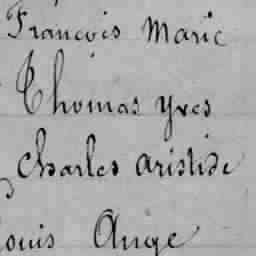 François Marie
Thomas Yves
Charles Aristide
Louis Ange